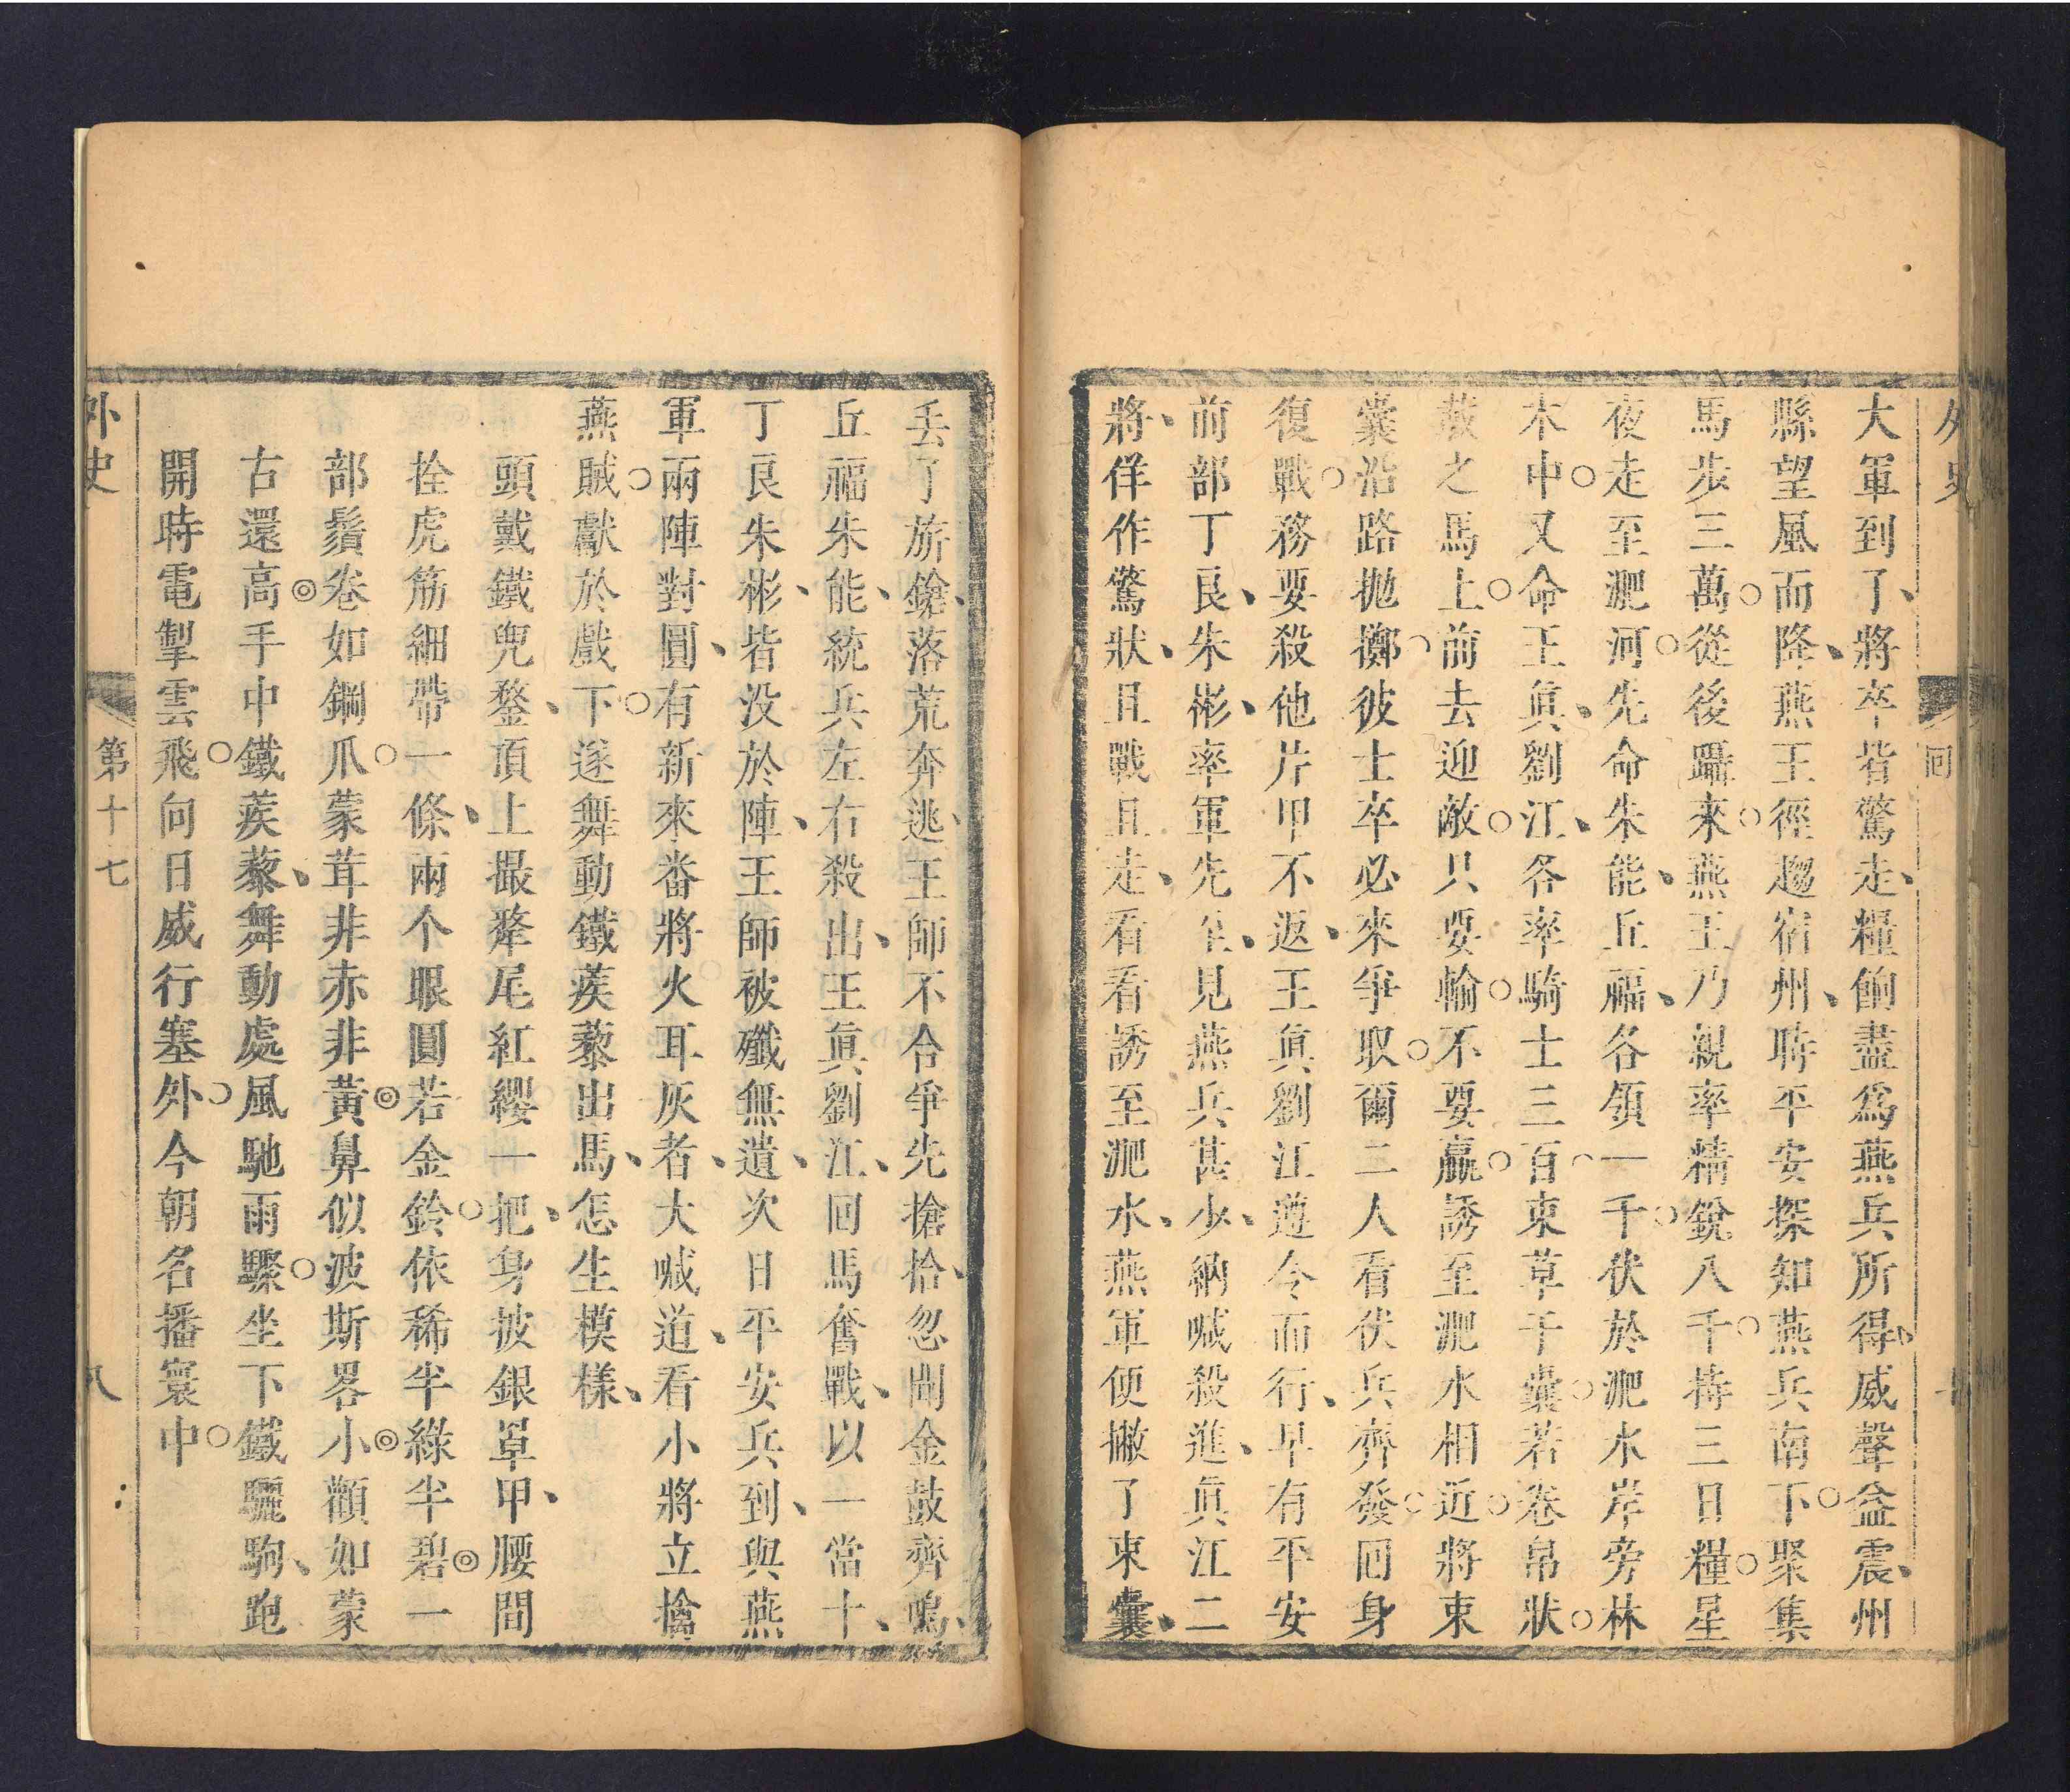 外史
回
大軍到了將卒皆驚走糧餉盡爲燕兵所得威聲益震州
縣望風而降燕王徑趨宿州時平安探知燕兵南下聚集
馬步三萬從後躡來燕王乃親率精銳八千持三日糧星
夜走至淝河先命朱能丘福各領一千伏於淝水岸旁林
木中又命王眞劉江各率騎士三百束草于囊若卷帛狀
載之馬上前去迎敵只要輸不要贏誘至淝水相近將束
囊沿路抛擲彼士卒必來爭取爾二人看伏兵齊發回身
復戰務要殺他片甲不返王眞劉江遵令而行早有平安
前部丁良朱彬率軍先至見燕兵甚少納喊殺進眞江二
將佯作驚狀且戰且走看看誘至淝水燕軍便撇了束囊
丟了旂鎗落荒奔逃王師不合爭先搶拾忽聞金鼓齊鳴
丘福朱能統兵左右殺出王眞劉江回馬奮戰以一當十
丁良朱彬皆没於陣王師被殲無遺次日平安兵到與燕
軍兩陣對圓有新來番將火耳灰者大喊道看小將立擒
燕賊獻於戲下遂舞動鐵蒺藜出馬怎生模樣
頭戴鐵兜鍪頂上撮犛尾紅纓一把身披銀罩甲腰間
拴虎筋細帶一條兩个眼圓若金鈴依稀半綠半碧一
部鬚卷如鋼爪蒙茸非赤非黃鼻似波斯畧小顴如蒙
古還高手中鐵蒺藜舞動處風馳雨驟坐下鐵驪駒跑
開時電掣雲飛向日威行塞外今朝名播寰中
外史
第十七
八